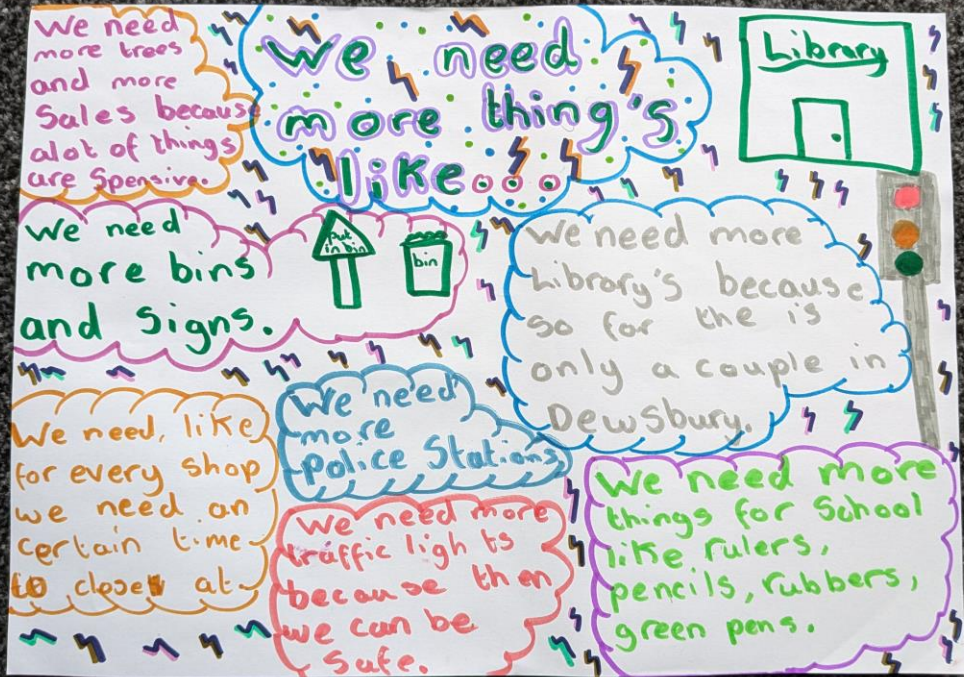 We need
more things's
like...
We need
more trees
and more
Sales because
alot of things
are Spensive.
Library
We need
more bins
and signs.
put
in bin
bin
We need more
Library's because
so for the is
only a couple in
Dewsbury.
We need, like
for every shop
we need an
certain time
to closes at.
We need
more
police Stations
We need more
traffic lights
because then
we can be
safe.
We need more
things for School
like rulers,
pencils, rubbers,
green pens.